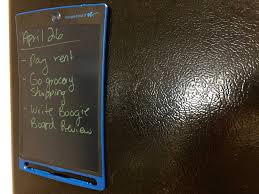 April 26
- Pay rent
- Go grocery
shopping
- Write Boogie
Board Review